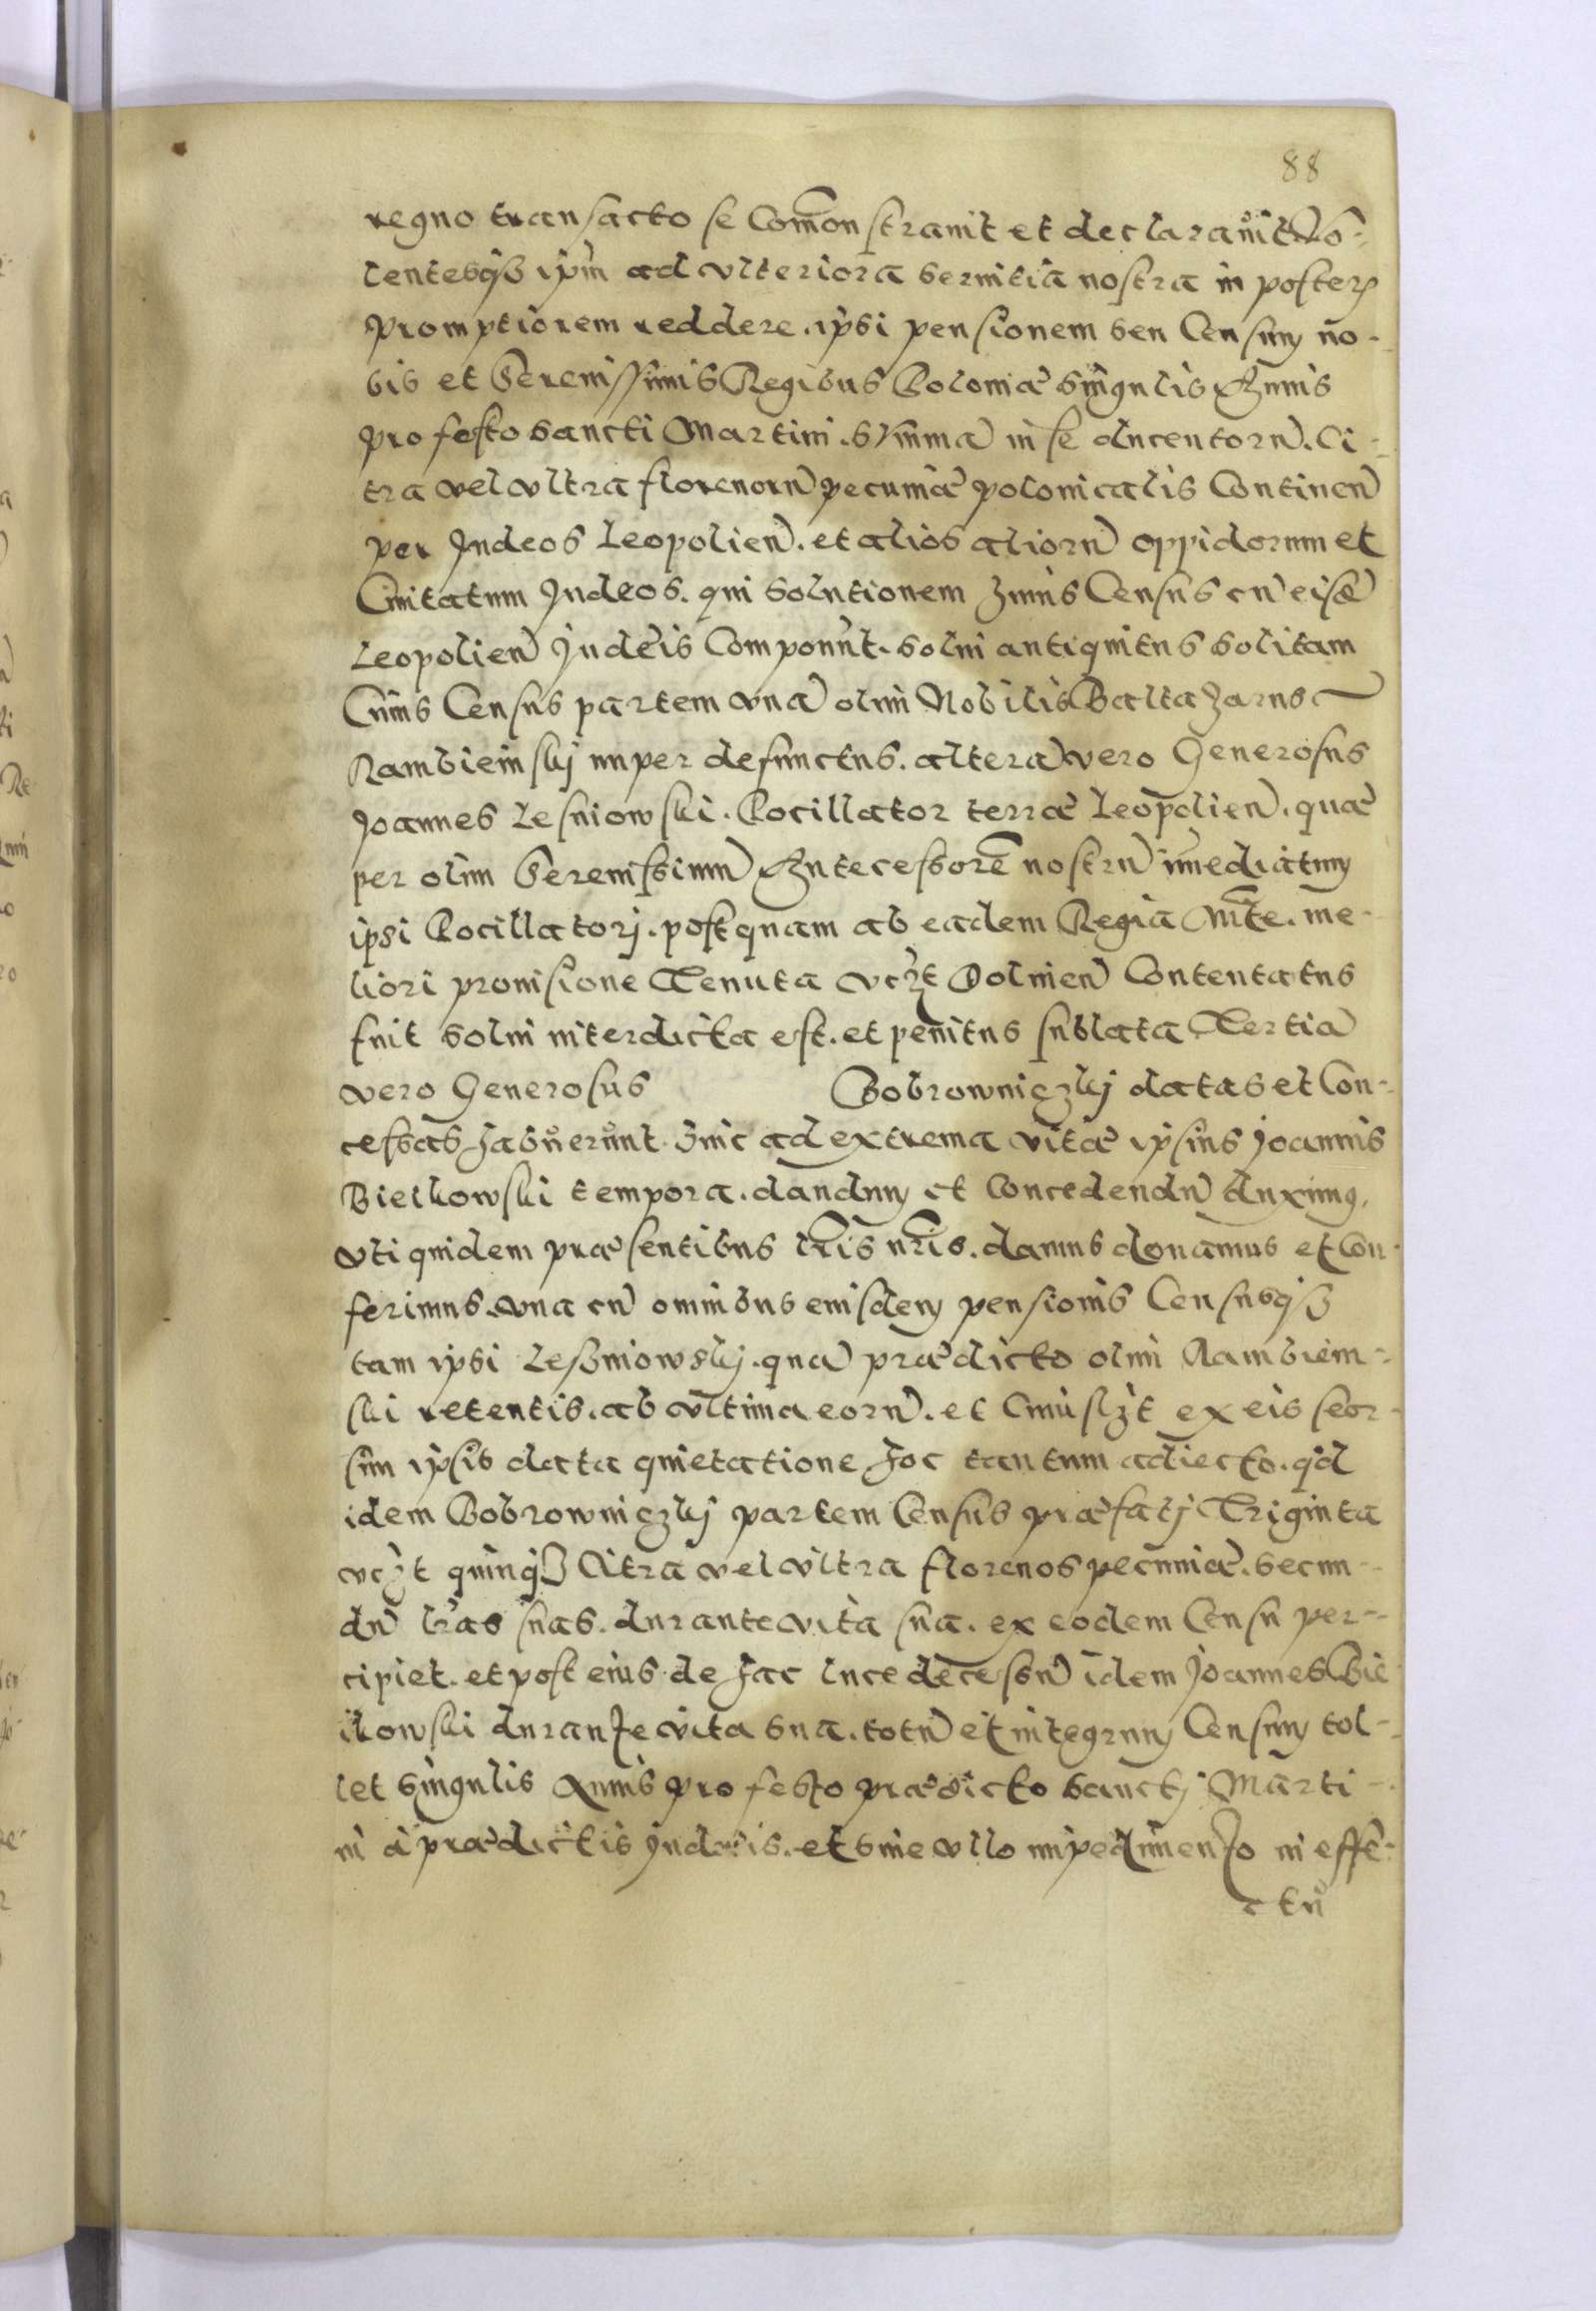 88
regno transacto se Com̃onstrauit et declarauit Vo-
lentesq̃ȝ ip̃m ad vlteriora seruitia nostra in poster
promptiorem reddere. ipsi pensionem seu Censum no-
bis et Serenissimis Regibus Poloniæ singulis Annis
pro festo Sancti Martini. Summã in se ducentorũ. Ci-
tra vel vltra florenorũ pecuniæ polonicalis Continen̄
per Judeos Leopolien̄. et alios aliorũ oppidorum et
Ciuitatum Judeos. qui solutionem huius Census cũ eisd̃
Leopolien̄ Judeis Componũt. solui antiquitus solitam
Cuius Census partem vnã olim Nobilis Baltazarus
Rambieinskj nuper defunctus. alterã vero Generosus
Joannes Lesniowski. Pocillator terræ Leopolien̄. quæ
per olim Serenissimũ Antecessorẽ nostrũ im̃ediatum
ipsi Pocillatorj. postquam ab eadem Regia Mt̃e. me-
liori prouisione Tenuta vcz̃t Dolinen̄ Contentatus
fuit solui interdicta est. et penitus sublata Tertiã
vero Generosus Bobrowniczkj datas et Con-
cessas habuerunt. huic ad extrema vitæ ipsius Joannis
Bielkowski tempora. dandum et Concedendũ duximus.
vti quidem præsentibus lr̃is nr̃is. damus donamus et Con-
ferimus. vna cũ omnibus eiusdem pensionis Censusq̃ȝ
tam ipsi Lesniowskj. quã prædicto olim Rambiein-
ski retentis. ab vltima eorũ. et Cuiuslz̃t ex eis seor-
sim ipsis data quietatione hoc tantum adiecto. q̃d
idem Bobrowniczkj partem Census præfatj Triginta
vcz̃t quinq̃ȝ Citra vel vltra florenos pecuniæ. secun-
dũ lr̃as suas. durante vita sua. ex eodem Censu per-
cipiet. et post eius de hac luce decessũ idem Joannes Bie
lkowski durante vita sua. totũ et integrum Censum tol-
let singulis Annis pro festo prædicto Sanctj Marti-
ni à prædictis Judæis. et sine vllo impedimento in effe-
ctũ